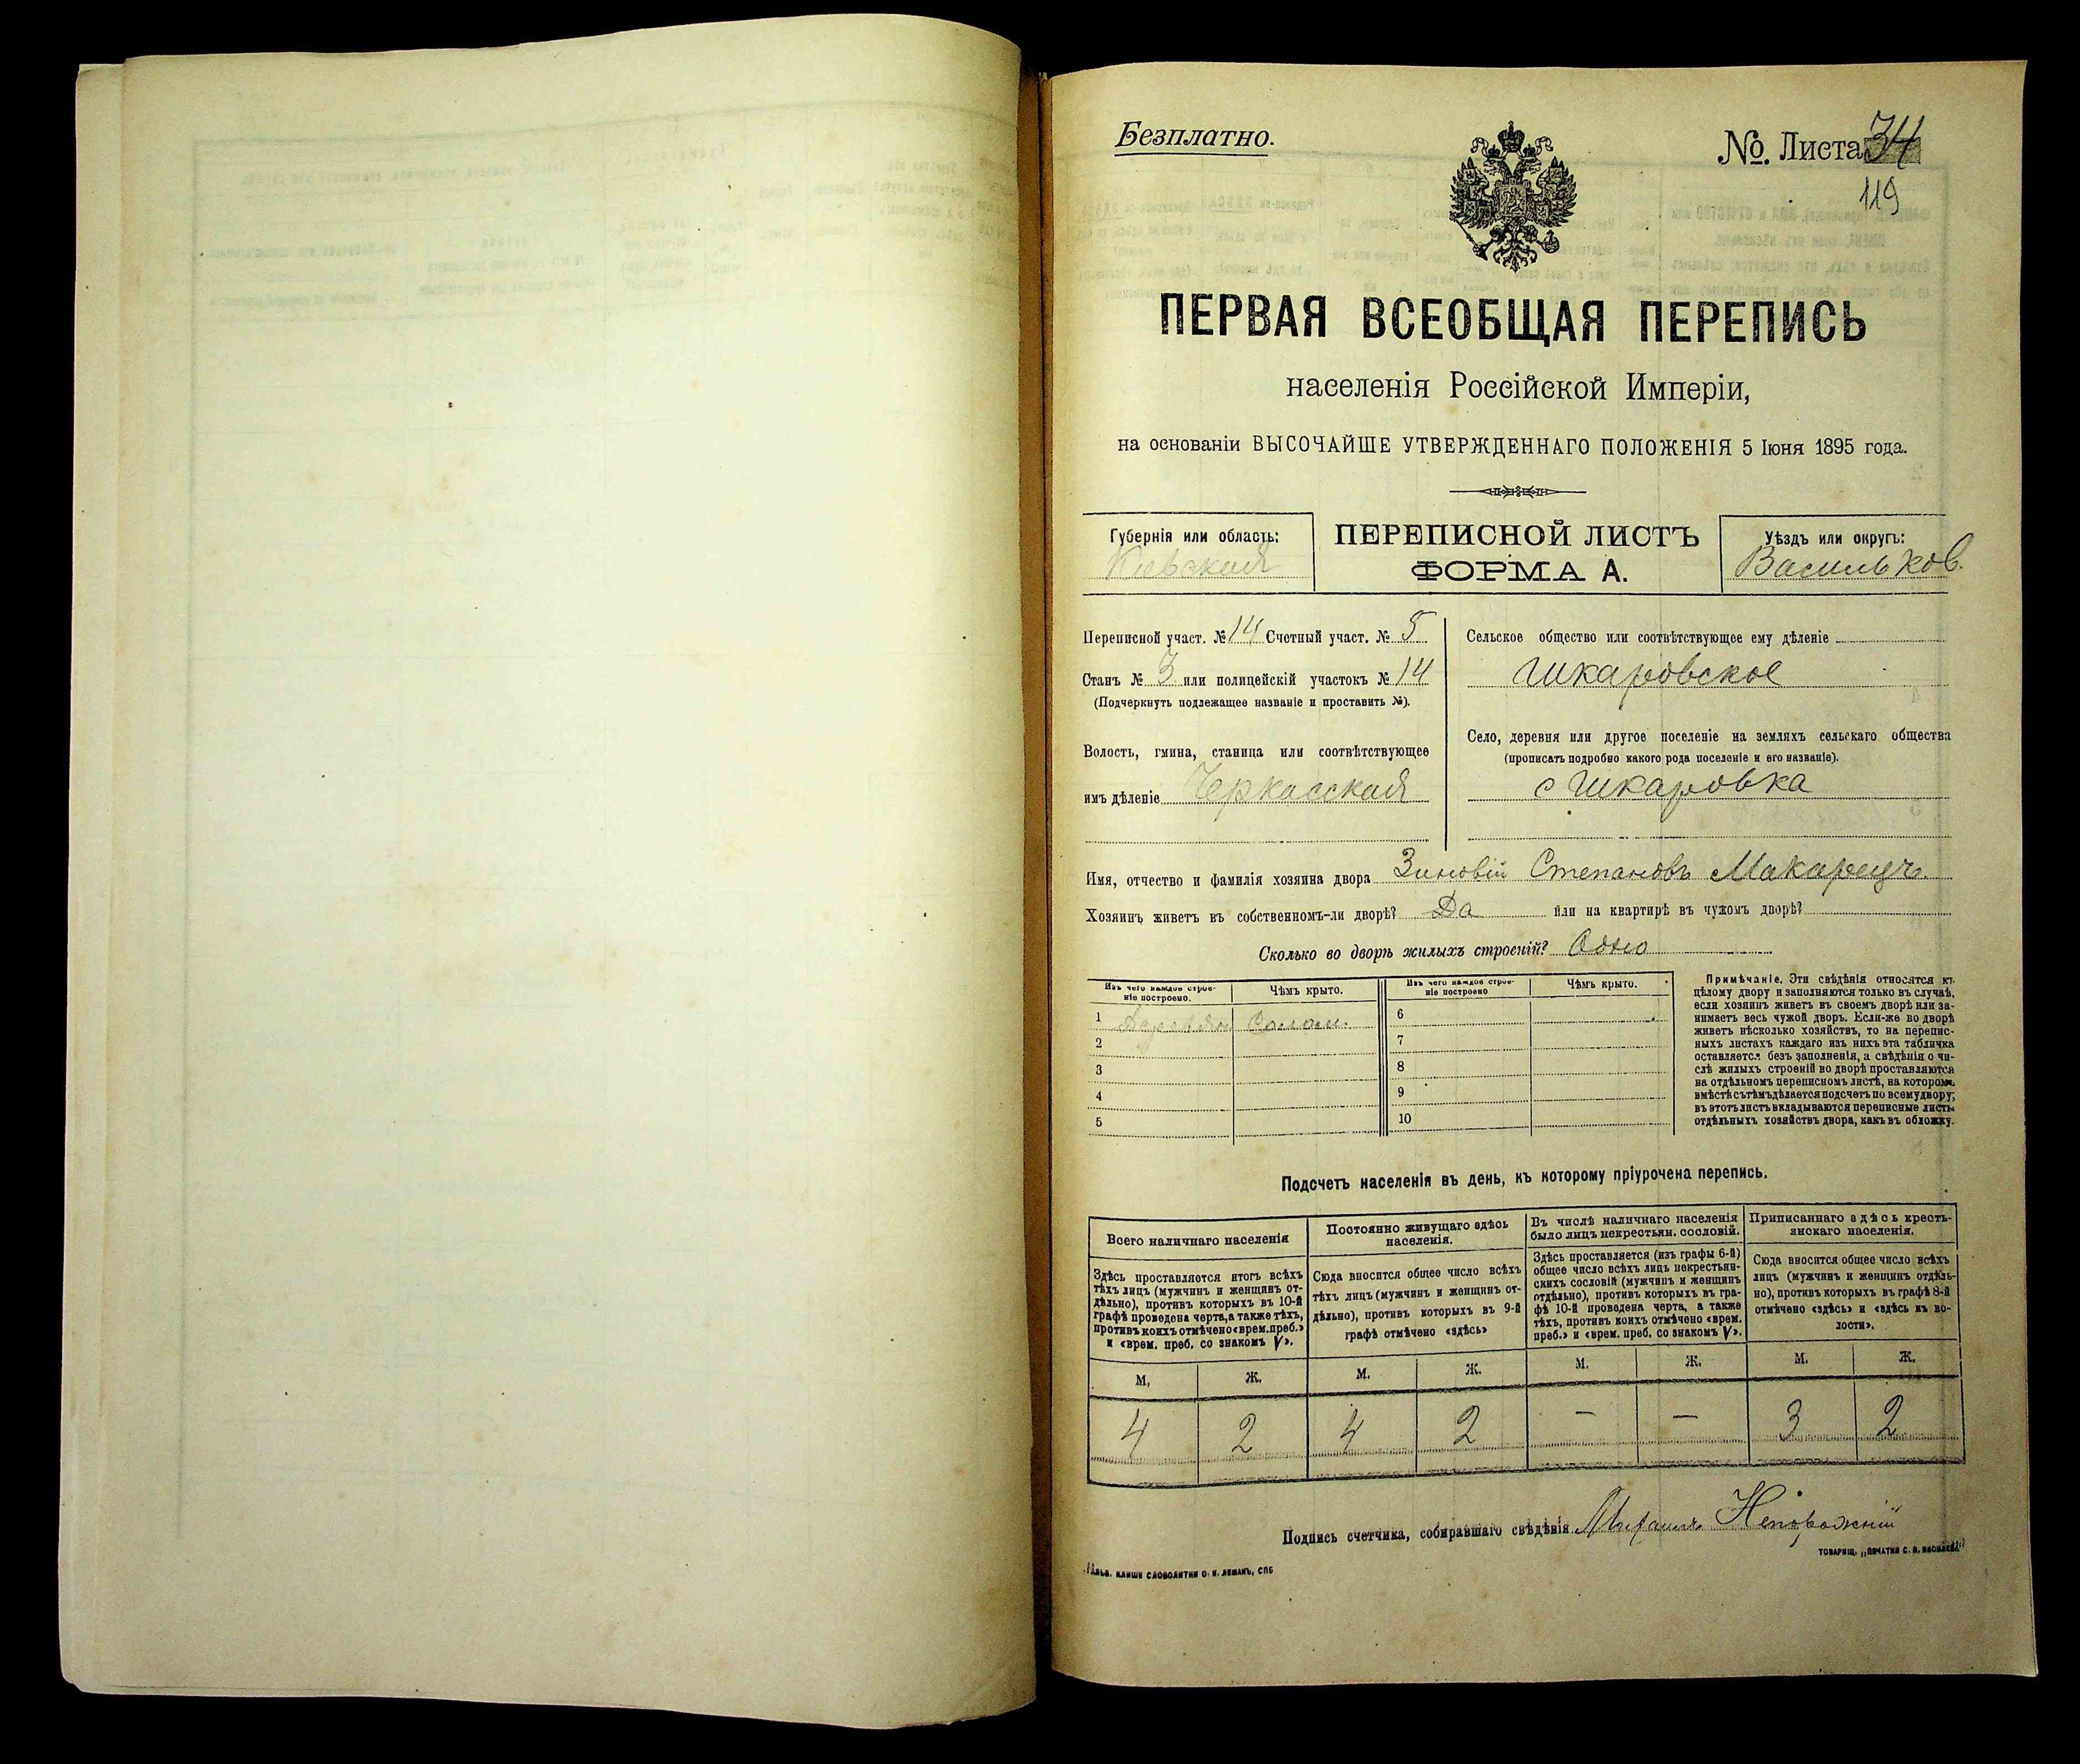 Безплатно.
№. Листа 34
119
ПЕРВАЯ ВСЕОБЩАЯ ПЕРЕПИСЬ
населенія Россійской Имперіи,
на основаніи ВЫСОЧАЙШЕ УТВЕРЖДЕННАГО ПОЛОЖЕНІЯ 5 Іюня 1895 года.
Губернія или область:
Кіевская
ПЕРЕПИСНОЙ ЛИСТЪ
ФОРМА А.
Уѣздъ или округъ:
Васильков.
Переписной участ. № 14 Счетный участ. № 5
Станъ № 3 или полицейскій участокъ № 14
(Подчеркнуть подлежащее названіе и проставить №).
Волость, гмина, станица или соотвѣтствующее
имъ дѣленіе Черкасская
Сельское общество или соотвѣтствующее ему дѣленіе
Шкаровское
Село, деревня или другое поселеніе на земляхъ сельскаго общества
(прописать подробно какого рода поселеніе и его названіе).
с Шкаровка
Имя, отчество и фамилія хозяина двора Зиновій Степановъ
Хозяинъ живетъ въ собственномъ-ли дворѣ? Да или на квартирѣ въ чужомъ дворѣ?
Сколько во дворѣ жилыхъ строеній? Одно
Изъ чего каждое строе-
ніе построено.
Чѣмъ крыто.
Изъ чего каждое строе-
ніе построено
Чѣмъ крыто.
1 Деревян Солом. 6
2 7
3 8
4 9
5 10
Примѣчаніе. Эти свѣдѣнія относятся къ
цѣлому двору и заполняются только въ случаѣ,
если хозяинъ живетъ въ своемъ дворѣ или за-
нимаетъ весь чужой дворъ. Если-же во дворѣ
живетъ нѣсколько хозяйствъ, то на перепис-
ныхъ листахъ каждаго изъ нихъ эта табличка
оставляется безъ заполненія, а свѣдѣнія о чи-
слѣ жилыхъ строеній во дворѣ проставляются
на отдѣльномъ переписномъ листѣ, на которомъ
вмѣстѣ съ тѣмъ дѣлается подсчетъ по всему двору;
въ этотъ листъ вкладываются переписные листы
отдѣльныхъ хозяйствъ двора, какъ въ обложку.
Подсчетъ населенія въ день, къ которому пріурочена перепись.
Всего наличнаго населенія
Здѣсь проставляется итогъ всѣхъ
тѣхъ лицъ (мужчинъ и женщинъ от-
дѣльно), противъ которыхъ въ 10-й
графѣ проведена черта, а также тѣхъ,
противъ коихъ отмѣчено «врем. преб.»
и «врем. преб. со знакомъ V».
Постоянно живущаго здѣсь
населенія.
Сюда вносится общее число всѣхъ
тѣхъ лицъ (мужчинъ и женщинъ от-
дѣльно), противъ которыхъ въ 9-й
графѣ отмѣчено «здѣсь»
Въ числѣ наличнаго населенія
было лицъ некрестьян. сословій.
Здѣсь проставляется (изъ графы 6-й)
общее число всѣхъ лицъ некрестьян-
скихъ сословій (мужчинъ и женщинъ
отдѣльно), противъ которыхъ въ гра-
фѣ 10-й проведена черта, а также
тѣхъ, противъ коихъ отмѣчено «врем.
преб.» и «врем. преб. со знакомъ V».
Приписаннаго здѣсь кресть-
янскаго населенія.
Сюда вносится общее число всѣхъ
лицъ (мужчинъ и женщинъ отдѣль-
но), противъ которыхъ въ графѣ 8-й
отмѣчено «здѣсь» и «здѣсь къ во-
лости».
М. Ж. М. Ж. М. Ж. М. Ж.
4 2 4 2 — — 3 2
Подпись счетчика, собиравшаго свѣдѣнія Михаилъ